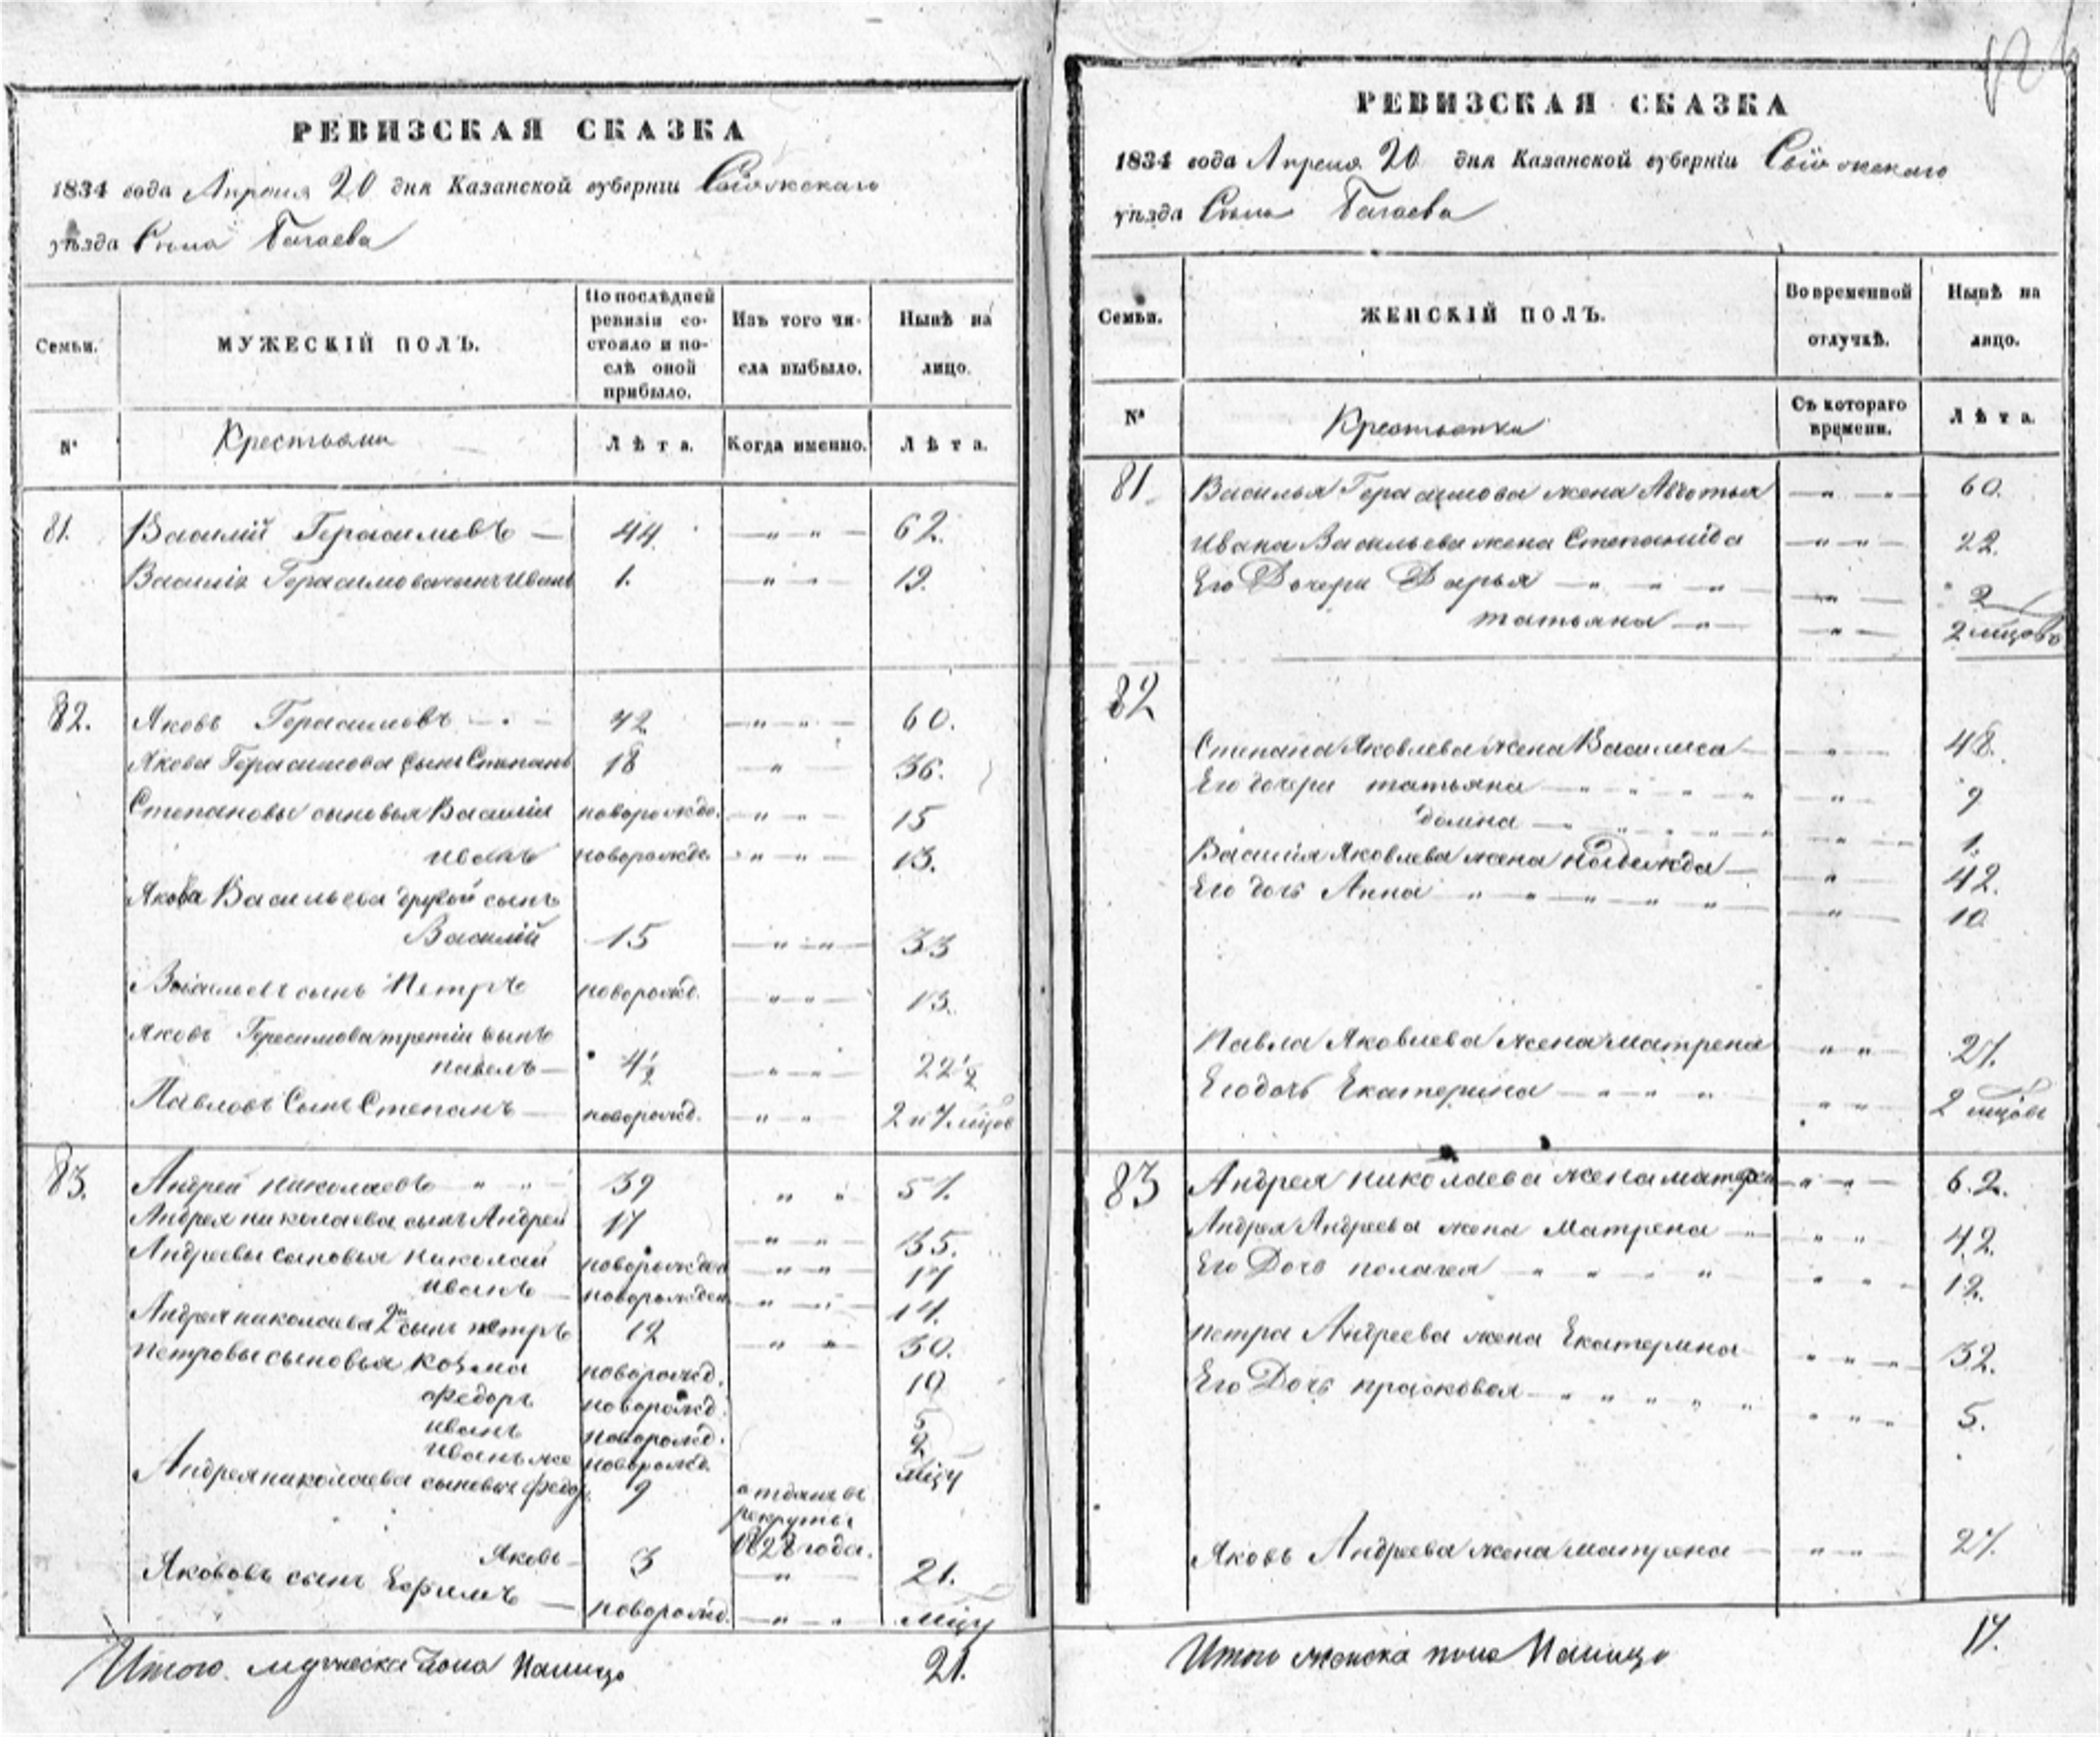 РЕВИЗСКАЯ СКАЗКА
1834 года Апреля 20 дня Казанской губерніи Свіяжскаго
уѣзда Села Багаева
Семьи.
МУЖЕСКІЙ ПОЛЪ.
По послѣдней ревизіи состояло и послѣ оной прибыло.
Изъ того числа выбыло.
Нынѣ на лицо.
№
Крестьяне
Лѣта.
Когда именно.
Лѣта.
81. Василій Герасимовъ — 44. — " " — 62.
Василія Герасимова сынъ Иванъ 1. — " — 19.
82. Яковъ Герасимовъ 42 — " " — 60.
Якова Герасимова сынъ Степанъ 18 — " — 36.
Степановы сыновья Василій новорожде. — " " — 15
Иванъ новорожде. " — " — 13.
Якова Васильева другой сынъ
Василій 15 — " — " — 33
Васильевъ сынъ Петръ новорожд. — " " — 13.
Яковъ Герасимова третій сынъ
павелъ — 4 1/2 — " — " — 22 1/2
Павловъ Сынъ Степанъ — новорожд. — " " — 2 и 7 мцов
83. Андрей Николаевъ " " 39 " " 57.
Андрея николаева сынъ Андрей 17 — " " — 35.
Андреевы сыновья Николай новорожден — " " — 17
иванъ — новорожден — " — " — 14.
Андрея николаева 2й сынъ петръ 12 — " " — 30.
Петровы сыновья Козма новорожд. 10
Федоръ новорожд. 5
иванъ новорожд. 2
иванъ же новорожд. мцу
Андрея николаева сыновья Федор 9 отданъ въ
рекруты
1828 года.
Яковъ — 3 — " — 21.
Якововъ сынъ Ефимъ — новорожд. — " " мцу
Итого мужеска пола Налицо 21.
РЕВИЗСКАЯ СКАЗКА
1834 года Апреля 20 дня Казанской губерніи Свіяжскаго
уѣзда Села Багаева
Семьи.
ЖЕНСКІЙ ПОЛЪ.
Во временной отлучкѣ.
Нынѣ на лицо.
№
Крестьянки
Съ котораго времени.
Лѣта.
81. Василья Герасимова жена Авдотья — " — " — 60.
Ивана Васильева жена Степанида — " " — 22.
Его Дочери Дарья — " " " — " — 2
татьяна — " — — " — 2 мцовъ
82
Степана Яковлева жена Василиса — — " — 48.
Его дочери татьяна — " " " " — " — 9
домна — " " " " — " — 1.
Василия Яковлева жена Надежда — — " — 42.
Его дочь Анна " " " " " — " — 10
Павла Яковлева жена матрена " " — 27.
Его дочь Екатерина — " " " " " — 2 мцовъ
83 Андрея николаева жена матрен — " — " — 62.
Андрея Андреева жена Матрена — " — " " 42.
Его Дочь пелагея " " " " " " " 12.
петра Андреева жена Екатерина " " " — 32.
Его Дочь прасковья — " " " " " " " " 5.
Яковъ Андреева жена матрена — " " — 27.
Итого женска пола Налицо 17.